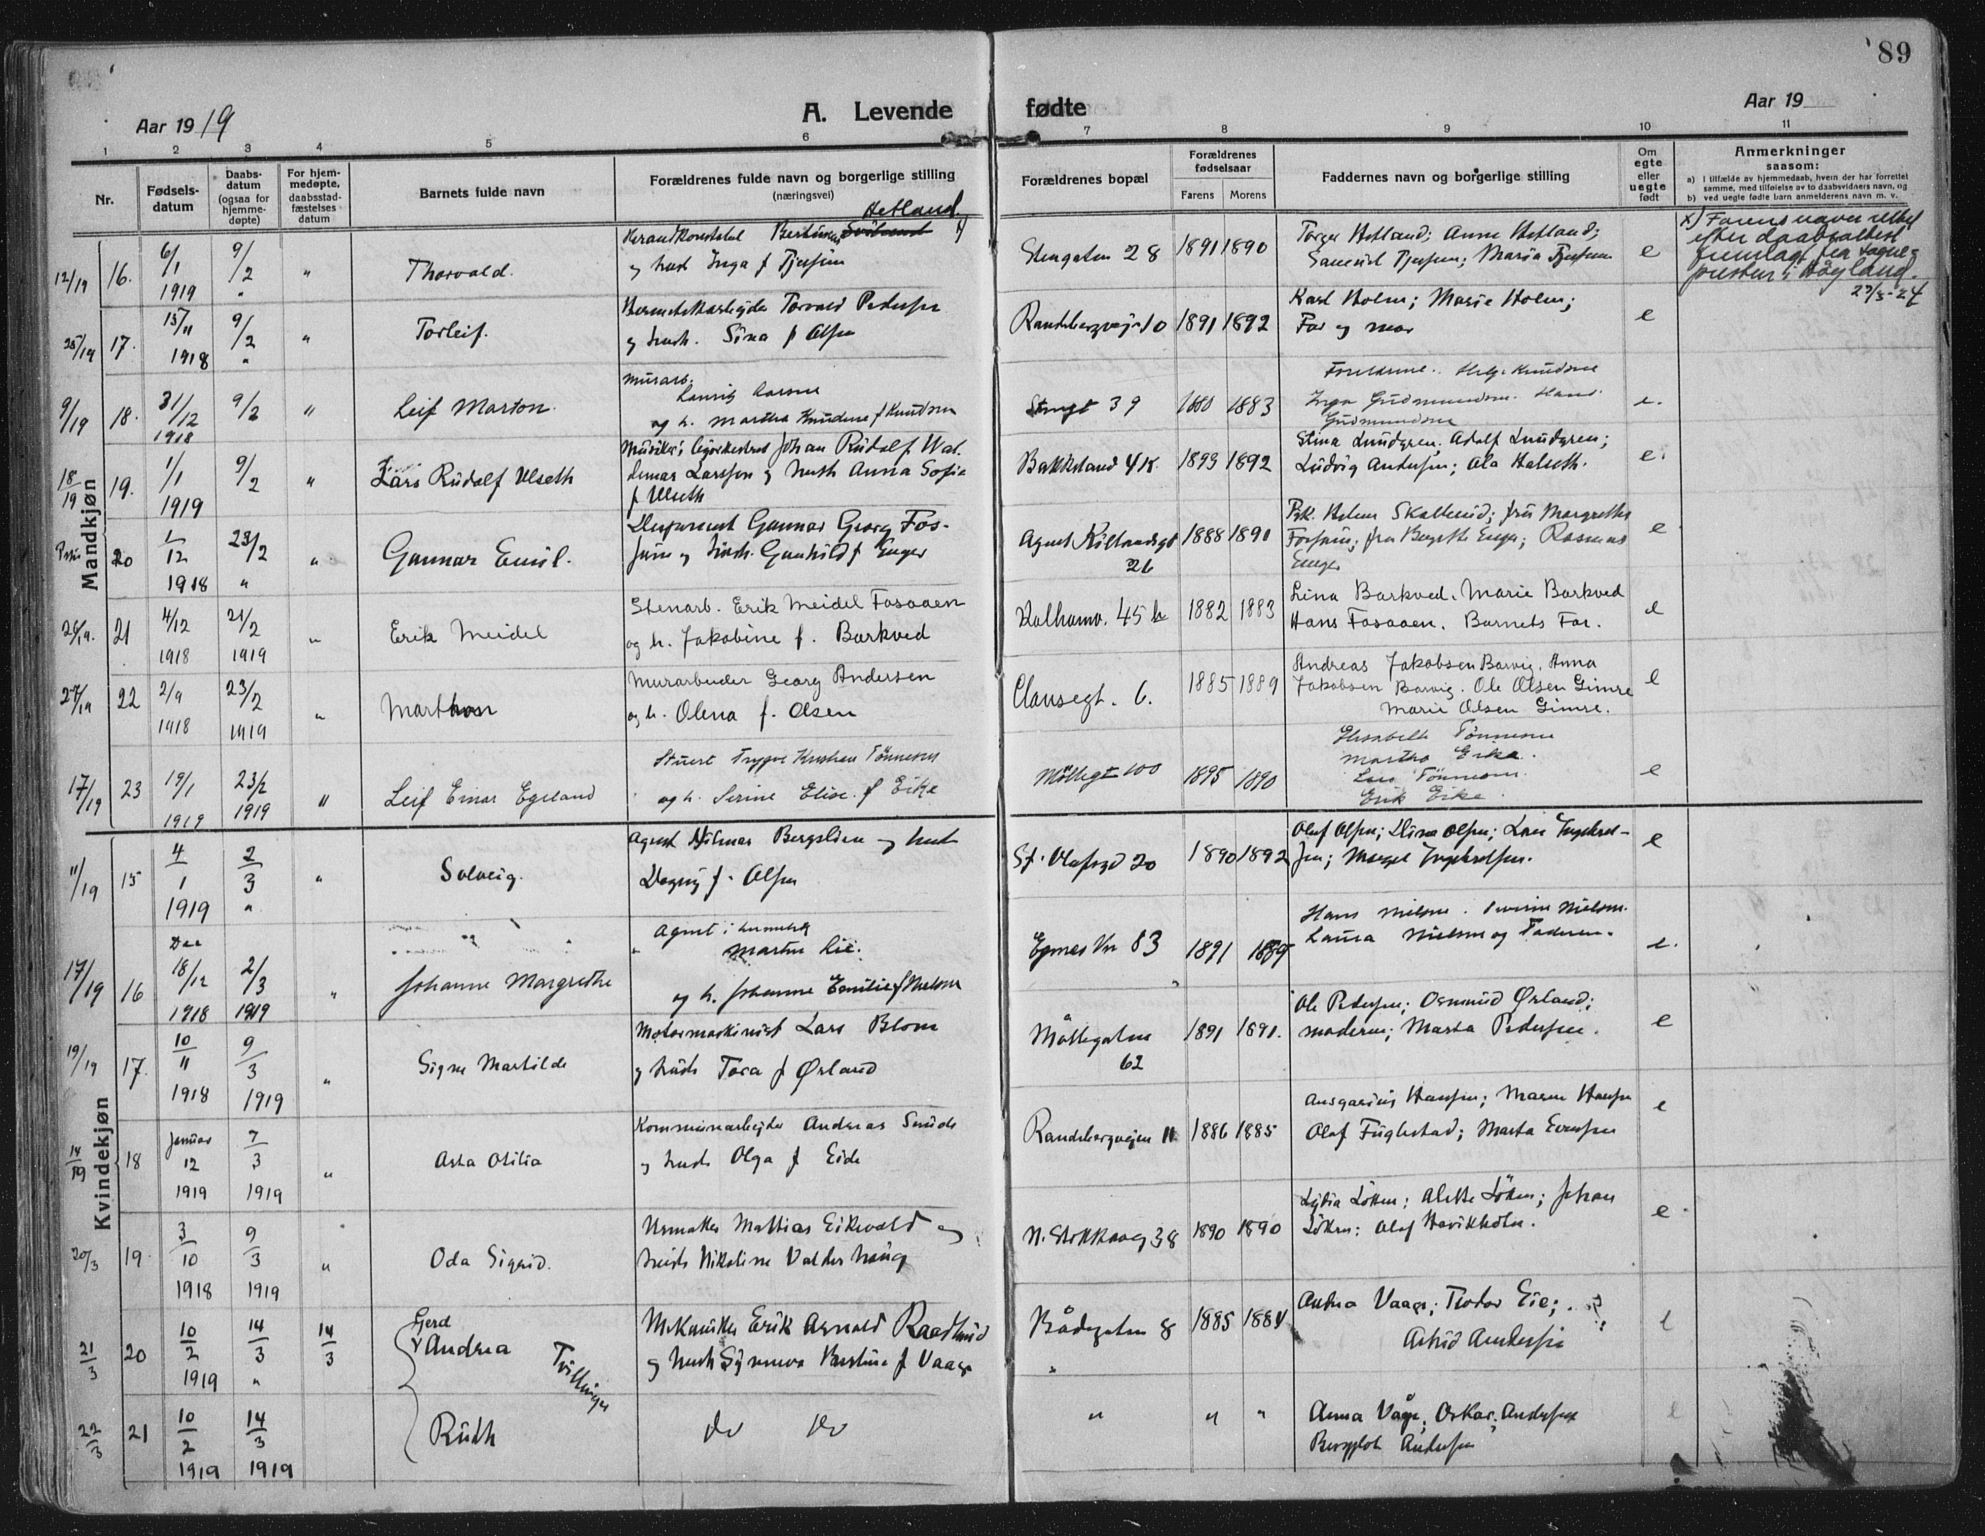 89
Aar 1919
A. Levende fødte
Aar 19
1 2 3 4 5 6 7 8 9 10 11
Nr.
Fødsels-
datum
Daabs-
datum
(ogsaa for
hjemme-
døpte)
For hjem-
medøpte,
daabsstad-
fæstelses
datum
Barnets fulde navn
Forældrenes fulde navn og borgerlige stilling
(næringsvei)
Forældrenes bopæl
Forældrenes
fødselsaar
Farens Morens
Faddernes navn og borgerlige stilling
Om
egte
eller
uegte
født
Anmerkninger
saasom:
a) I tilfælde av hjemmedaab, hvem der har forrettet
samme, med tilføielse av to daabsvidners navn, og
b) ved uegte fødte barn anmelderens navn m. v.
Mandkjøn
Hetland
12/19 16. 6/1 1919 9/2 " " Thorvald.
og hust. Inga f Tjersen
Stengaten 28 1891 1890
Torger Hetland; Anne Hetland;
Maria Tjersen
e
x) Farens navn rettet
efter daabsattest
fremlagt fra sogne-
presten i Høyland.
17. 15/11 1918 9/2 " " Torleif.
Hermetikarbeider Torvald Pedersen
og hust. Sina f Olsen
Randabergveien 10 1891 1892
Karl Holm; Marie Holm;
Far og mor
e
9/19 18. 31/12 1918 9/2 " Leif Marton.
Murarb.
Lauritz Larsen
og h. Martha Knudene f Knudsen
Stengt 39 1880 1883
Forældrene. Helge Knudsen
Inga Gudmundsen. Hans
Gudmundsen
e.
18/19 19. 1/1 1919 9/2 " Lars Rudolf Ulseth
Johan Rudolf Wal-
demar Larsson og hust Anna Sofie
f Ulseth
Bakkeland 4 K. 1893 1892
Stina Lundgren. Adolf Lundgren;
Ludvig Andersen; Ola Halseth.
e
20 1/12 1918 23/2 " " Gunnar Emil.
Disponent Gunnar Georg Fos-
og hust. Gunhild f Enger
Agent Kiellandsgt
26
1888 1890
Frk. Helene Skallerud; fru Margrethe
fru Bergitte Enger; Rasmus
Enger
e
26/19. 21 4/12 1918 21/2 1919 " Erik Meidel
Stenarb. Erik Meidel Fosaaen
og h. Jakobine f. Barkved
Kalhamv. 45 b 1882 1883
Lina Barkved. Marie Barkved
Hans Fosaaen. Barnets Far.
e
27/19 22 2/9 1918 23/2 1919 " Marthon
Murarbeider Georg Andersen
og h. Olena f. Olsen
Clausegt. 6. 1885 1889
Andreas Jakobsen Barvig. Anna
Jakobsen Barvig. Ole Olsen Gimre
Marie Olsen Gimre.
e
17/19 23 19/1 1919 23/2 1919 " Leif Einar Egeland
Stuert Trygve Kristian Tønnesen
og h. Serine Elise f Eike
Møllegt 100 1895 1890
Elisabeth Tønnesen
Martha Eike.
Lars Tønnesen.
Erik Eike.
e
Kvindekjøn
11/19 15 4/1 1919 2/3 " " Solveig.
Agent Hilmar Bergslien og hust
Dagny f. Olsen
St. Olafsgd 20 1890 1892
Olaf Olsen; Dina Olsen; Lars Ingebret-
sen; Margit Ingebretsen.
e
17/19 16 Dec 18/12 1918 2/3 1919 " Johanne Margrethe
Agent i hermetik
Martin Lie.
og h. Johanne Emilie f Nielsen
Egnes Vn 83 1891 1889
Hans Nielsen. Severin Nielsen.
Laura Nielsen og Faderen.
e.
19/19 17. 10/11 1918 9/3 1919 " Signe Martilde
Motormaskinist Lars Blom
og hust. Tora f Ørland
Møllegaten
62
1891 1891.
Ole Pedersen; Osmund Ørland;
moderen; Marta Pedersen.
e
14/19 18 Januar 12 1919 7/3 1919 " Asta Otilia
Kommunearbeider Andreas Smide
og hust. Olga f Eide
Randabergveien 11 1886 1885
Ansgarius Hansen; Maren Hansen
Olaf Fuglestad; Marta Evensen
e
20/3 19 3/10 1918 9/3 1919 " Oda Sigrid.
Urmaker Mattias Eikevold og
hust. Nikoline Valderhaug
N. Stokkavg 38 1890 1890
Lydia Løken; Alette Løken; Johan
Løken; Olaf Havikholm.
e
21/3 20 10/2 1919 14/3 " 14/3 Gerd
Andrea
Tvillinger
Mekaniker Erik Arnold Raadlund
og hust f Vaage
Bådegaten 8 1885 1884
Andrea Vaage; Teodor Eie;
Astrid Andersen
e
22/3 21 10/2 1919 14/3 1919 Ruth
do do
" " "
Anna Våge; Oskar Andersen
Bergljot Andersen
e